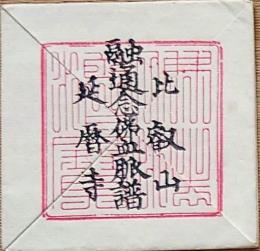 比叡山
融通念佛血脈譜
延暦寺